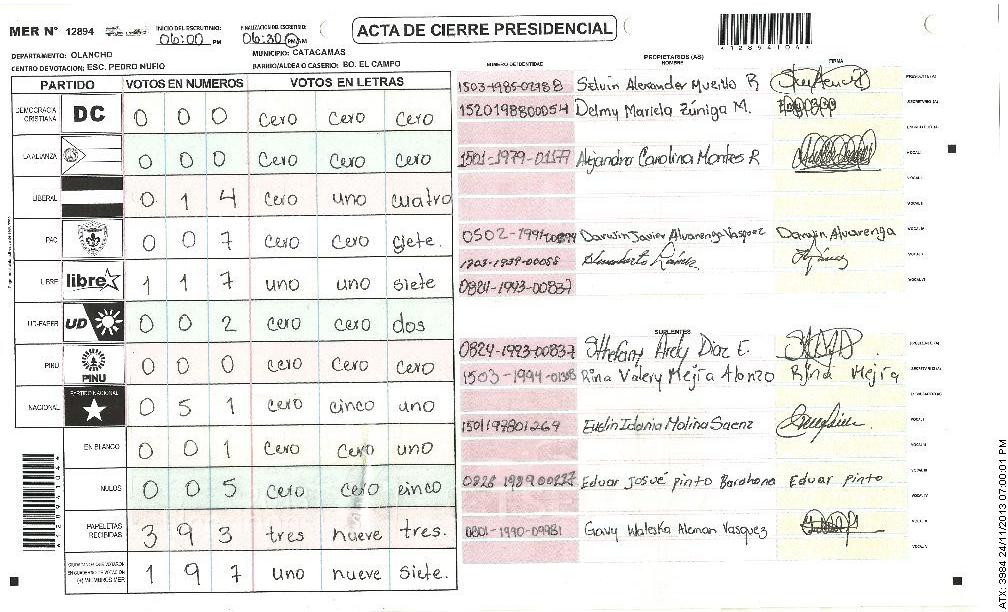 MER N° 12894
INICIO DEL ESCRUTINIO: 06:00 PM
FINALIZACION DEL ESCRUTINIO: 06:30 PM
ACTA DE CIERRE PRESIDENCIAL
DEPARTAMENTO: OLANCHO
MUNICIPIO: CATACAMAS
CENTRO DE VOTACION: ESC. PEDRO NUFIO
BARRIO/ALDEA O CASERIO: BO. EL CAMPO
PARTIDO VOTOS EN NUMEROS VOTOS EN LETRAS
DEMOCRACIA CRISTIANA DC 0 0 0 cero cero cero
LA ALIANZA 0 0 0 cero cero cero
LIBERAL 0 1 4 cero uno cuatro
PAC 0 0 7 cero cero siete.
LIBRE libre 1 1 7 uno uno siete
UD-FAPER UD 0 0 2 cero cero dos
PINU PINU 0 0 0 cero cero cero
NACIONAL PARTIDO NACIONAL 0 5 1 cero cinco uno
EN BLANCO 0 0 1 cero cero uno
NULOS 0 0 5 cero cero cinco
PAPELETAS RECIBIDAS 3 9 3 tres nueve tres.
(+) MIEMBROS MER 1 9 7 uno nueve siete.
NUMERO DE IDENTIDAD PROPIETARIOS (AS) NOMBRE FIRMA
1503-1985-02188 Selvin Alexander Murillo R
1520198800054 Delmy Mariela Zúniga M.
1501-1979-01177 Alejandra Carolina Montes R
Darwin Javier Alvarenga Vasquez Darwin Alvarenga
1703-1939-00058
0824-1993-00837
SUPLENTES
0824-1993-00837 Sthefany Arely Diaz E.
Rina Valery Mejía Alonzo Rina Mejía
1501197801269 Evelin Idania Molina Saenz
Eduar Josué pinto Barahona Eduar pinto
0801-1990-09981 Gavy Waleska Aleman Vasquez
41289410A4
ATX: 3984 24/11/2013 07:00:01 PM